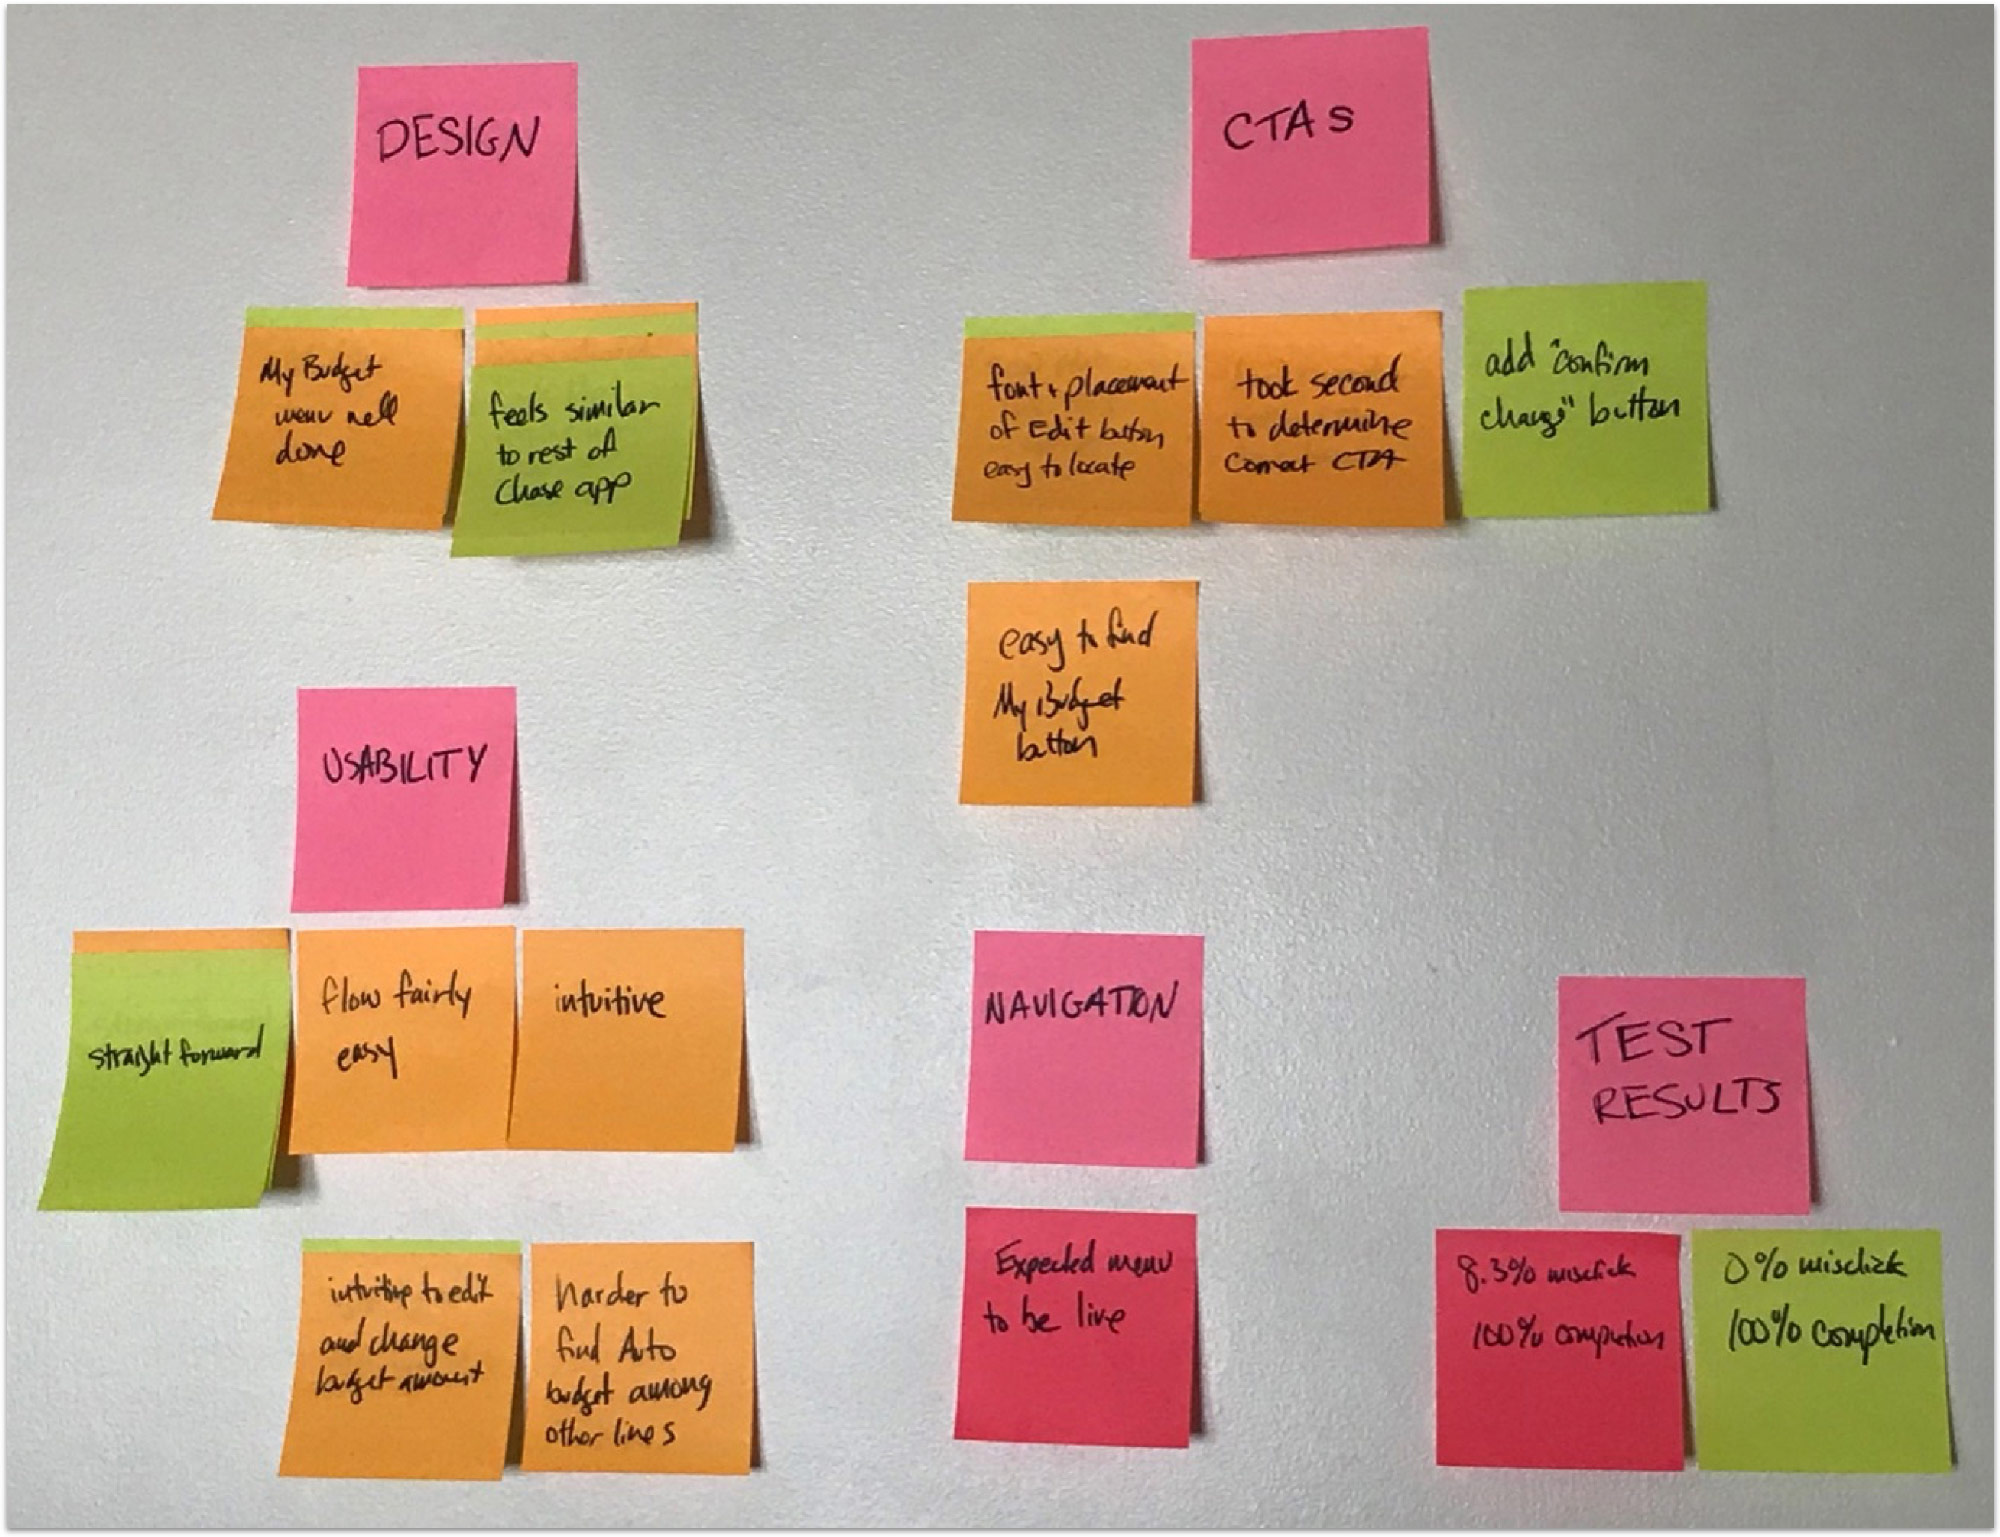 DESIGN
My Budget
menu well
done
feels similar
to rest of
Chase app
CTAs
font + placement
of Edit button
easy to locate
took second
to determine
correct CTA
add "confirm
change" button
easy to find
My Budget
button
USABILITY
straight forward
flow fairly
easy
intuitive
intuitive to edit
and change
budget amount
harder to
find Auto
budget among
other lines
NAVIGATION
Expected menu
to be live
TEST
RESULTS
8.3% misclick
100% completion
0% misclick
100% completion